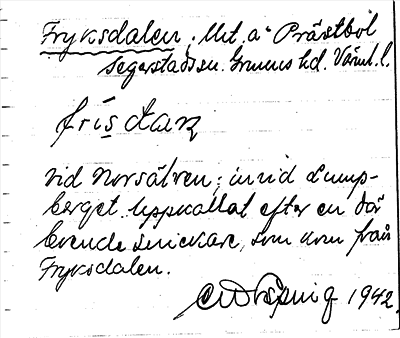 Fryksdalen; Ut. å Prästbol
Segerstads sn. Grums hd. Värml. l.
frisdan
vid Norsälven; invid Lump-
berget. Uppkallat efter en där
boende snickare, som kom från
Fryksdalen.
1942.